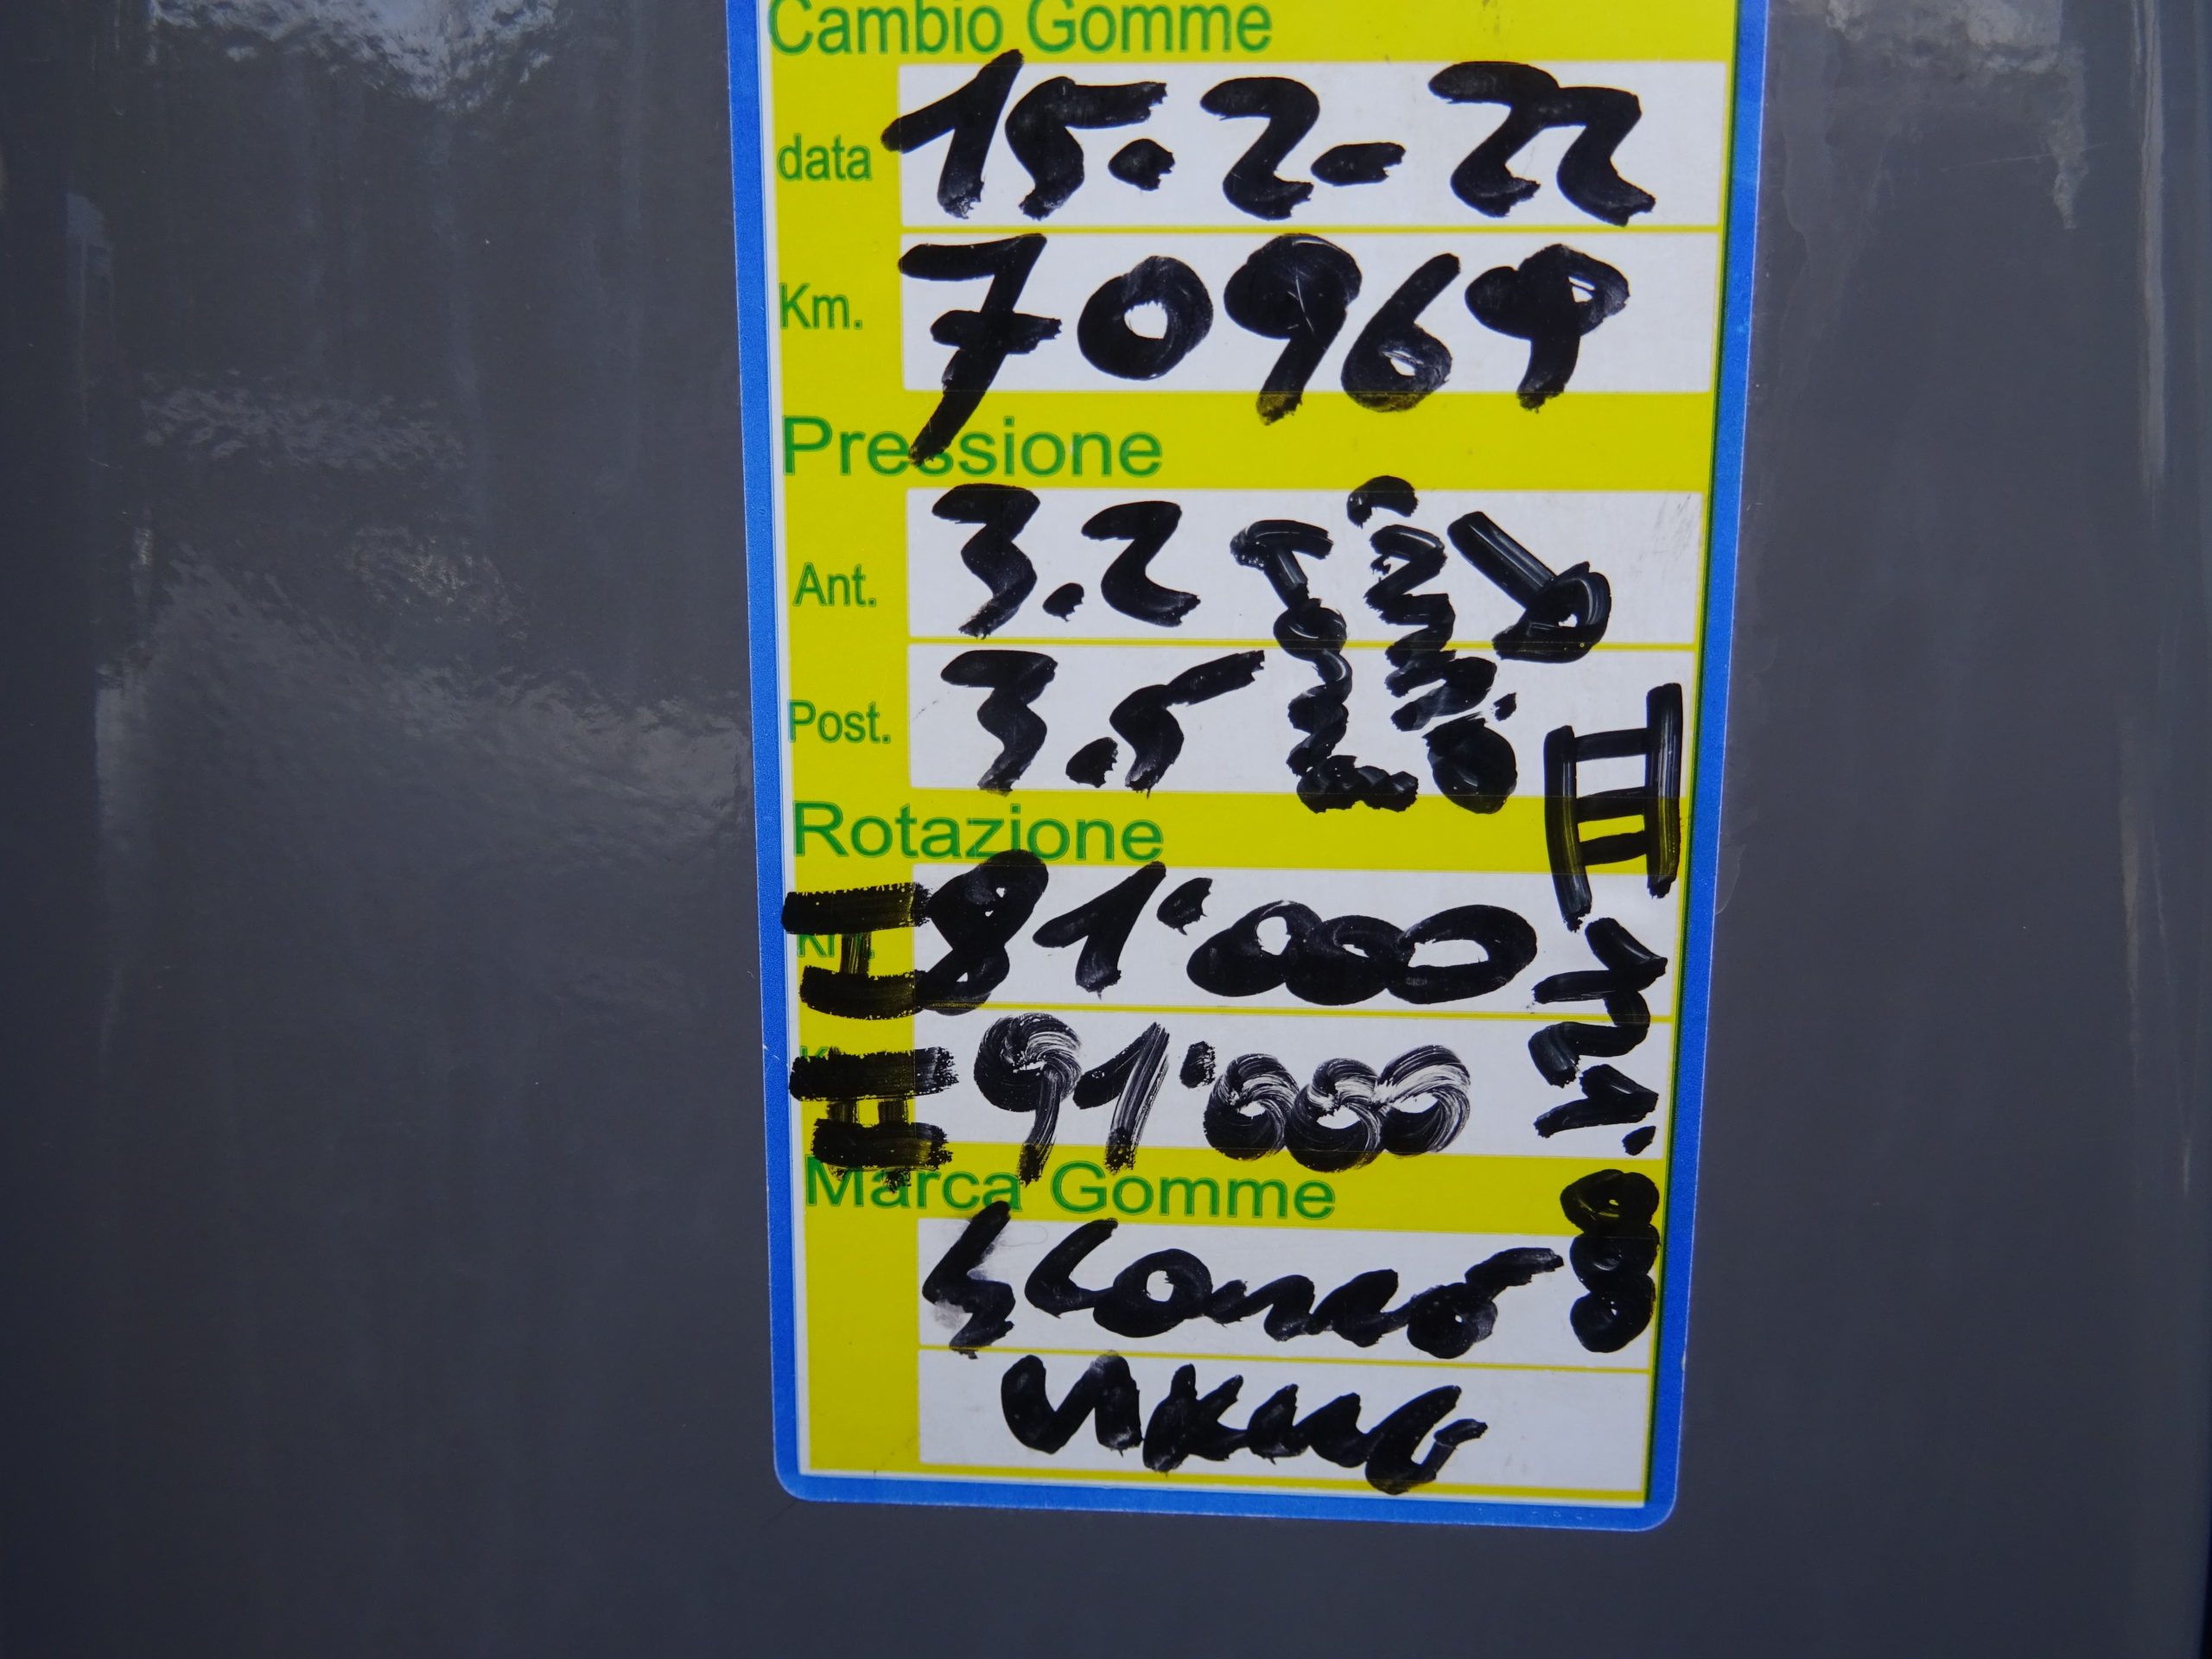 Cambio Gomme
data 15.2-22
Km. 70969
Pressione
Ant. 3.2
Post. 3.5
Rotazione
I 81'000
II 91'000
III
Marca Gomme
4
VIKING